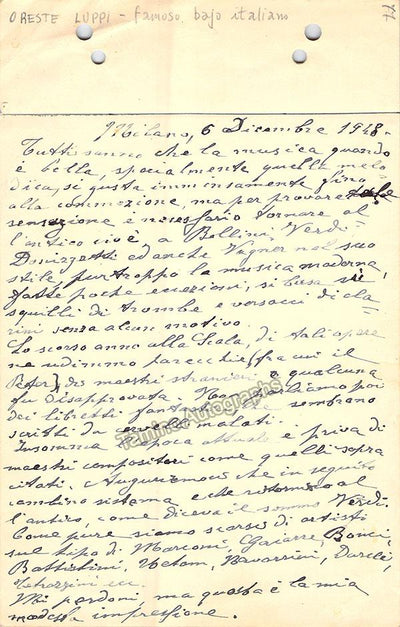 ORESTE LUPPI - famoso bajo italiano
Milano, 6 Dicembre 1948-
Tutti sanno che la musica quando
è bella, specialmente quella melo
dica, si gusta immensamente fino
alla commozione, ma per provare tale
sensazione è necessario tornare al
l'antico cioè, a Bellini, Verdi-
Donizzetti ed anche Vagner nel suo
stile, purtroppo la musica moderna,
fatte poche eccezioni, si basa su
squilli di trombe e versacci di cla
rini senza alcun motivo.
Lo scorso anno alla Scala, di tali opere
ne udimmo parecchie (fra cui il
des maestri stranieri e qualcuna
fu disapprovata. Non parliamo poi
dei libretti che sembrano
scritti da cervelli malati.
Insomma l'epoca attuale è priva di
maestri compositori come quelli sopra
citati. Auguriamoci che in seguito
cambino sistema e che ritornino al
l'antico, come diceva il sommo Verdi.
Come pure siamo scarsi di artisti
sul tipo di Marconi, Gaiarre, Bonci,
Battistini, Uetam, Navarrini,
Tetrazzini ecc.
Mi perdoni, ma questa è la mia
modesta impressione.
Tamino Autographs